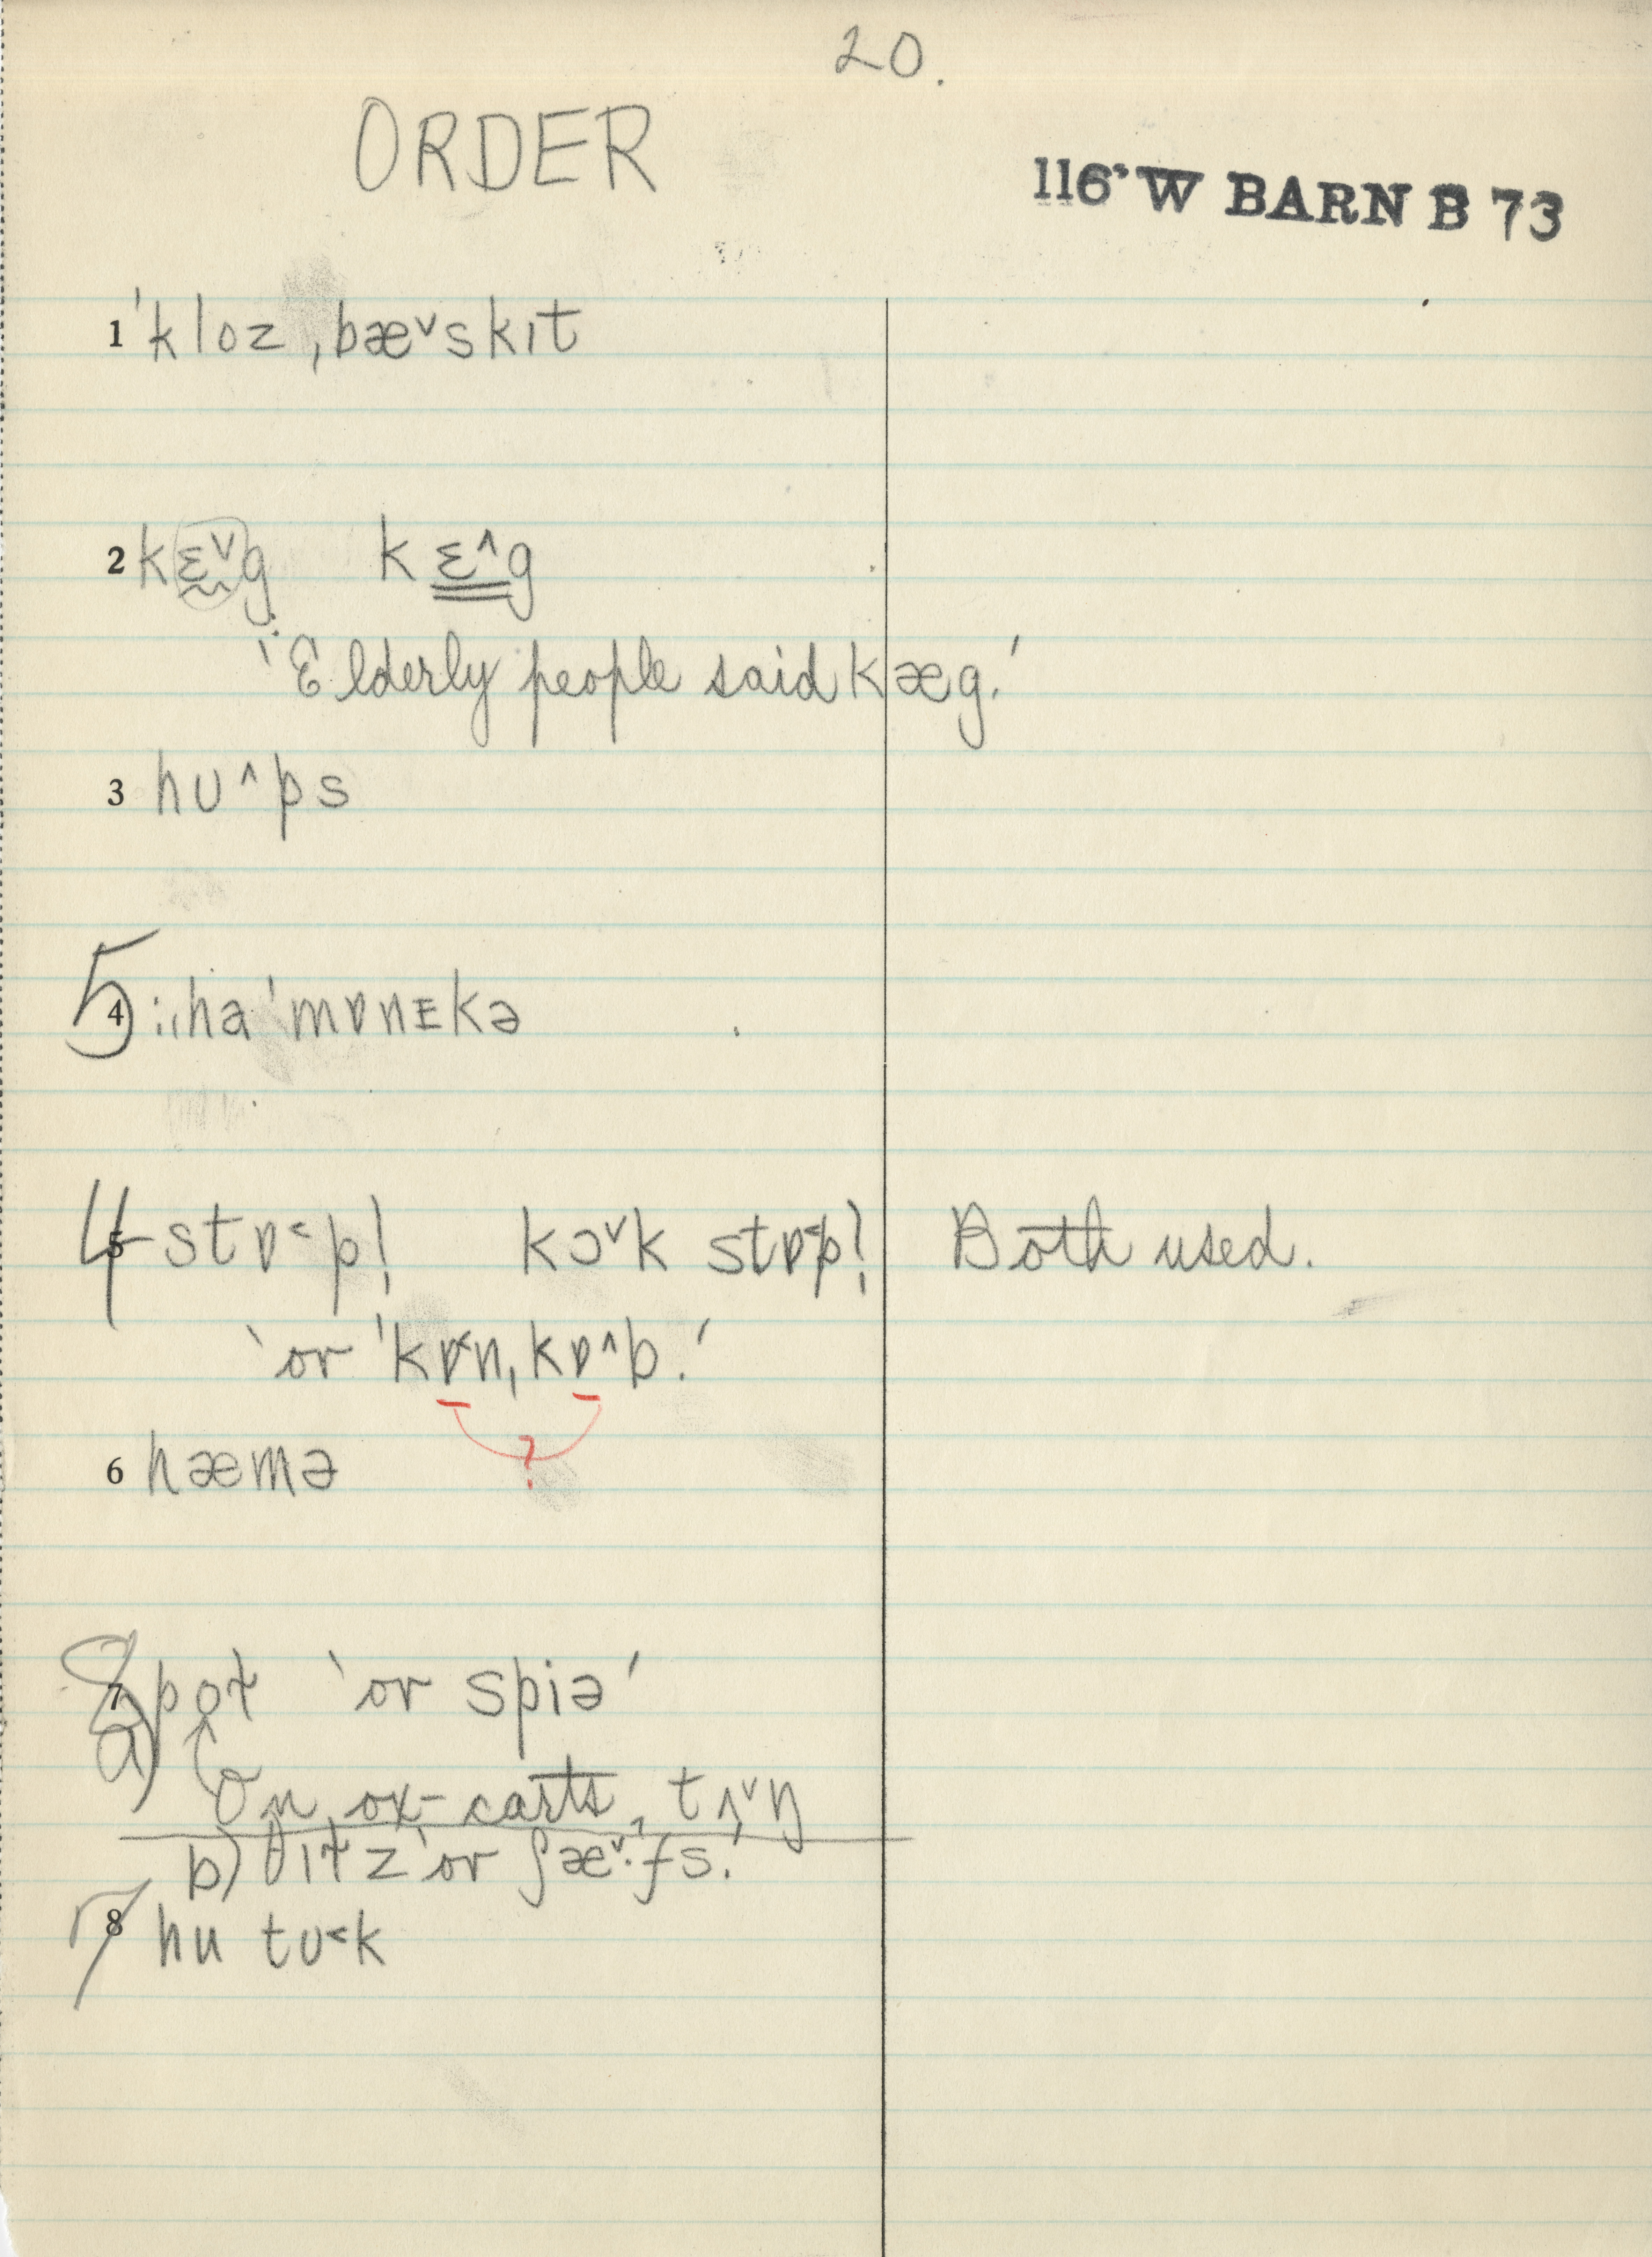 20.
ORDER
116·W BARN B 73
1 ˈkloz ˌbæ˅skɪt
2 kɛ˅g kɛ˄g
‘Elderly people said kæg.’
3 hʊ˄ps
5 4 haˈmɒnɪkə
4 5 stɒ˂p! kɔ˅k stɒ˂p! Both used.
‘or ˈkɒ˂nˌkɒ˄b.’
?
6 hæmə
8 7 a) poɫ ‘or spiə’
On ox-carts, tʌ˅ŋ
b) θɪɫz ‘or ʃæ˅·fs.’
7 8 hu tʊ˂k